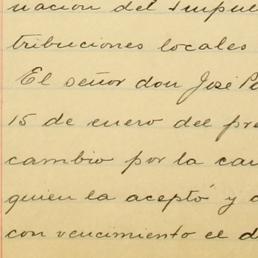 nación del Impu
tribuciones locales
El señor don José P
15 de enero del pre
cambio por la can
quien la aceptó y
con vencimiento el d